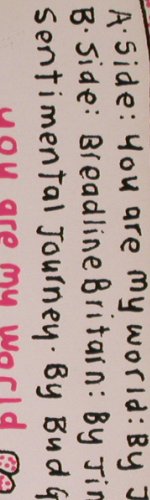 A·Side: you are my world: By J
B·Side: Breadline Britain: By Ji
Sentimental Journey· By Bud
you are my world